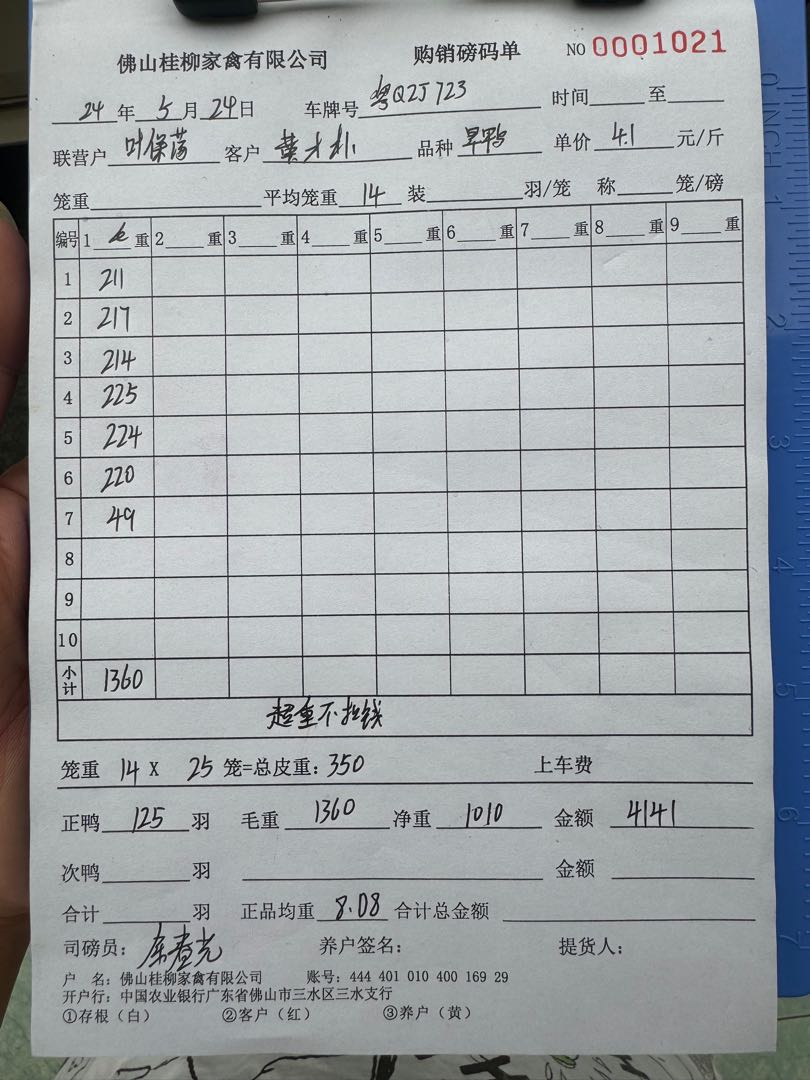 佛山桂柳家禽有限公司 购销磅码单 NO 0001021
24 年 5 月 24 日 车牌号 粤Q2J723 时间 至
联营户 叶保 客户 黄 品种 旱鸭 单价 4.1 元/斤
笼重 平均笼重 14 装 羽/笼 称 笼/磅
编号 1 重 2 重 3 重 4 重 5 重 6 重 7 重 8 重 9 重
1 211
2 217
3 214
4 225
5 224
6 220
7 49
8
9
10
小计 1360
超重不扣钱
笼重 14 X 25 笼=总皮重：350 上车费
正鸭 125 羽 毛重 1360 净重 1010 金额 4141
次鸭 羽 金额
合计 羽 正品均重 8.08 合计总金额
司磅员： 养户签名： 提货人：
户 名：佛山桂柳家禽有限公司 账号：444 401 010 400 169 29
开户行：中国农业银行广东省佛山市三水区三水支行
①存根（白） ②客户（红） ③养户（黄）
INCH
0
1
2
3
4
5
6
7